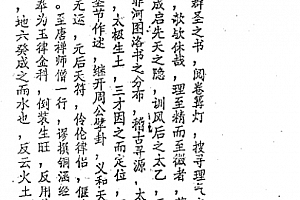 群圣之书，阅卷篝灯，搜寻理气
，欷歔休哉，理至精而至微者，
成启先天之隐，训风后之太乙，
非河图洛书之分布，稽古寻源，太
，太极生土，三才因之而定位，
圣节作述，继开周公擘卦，义和天
无运，元后天符，伶伦律吕，偃
。至唐禅师僧一行，谬损铜涵经
率为玉律金科，倒装生旺，反用
，地六癸成之而水也，反云火土